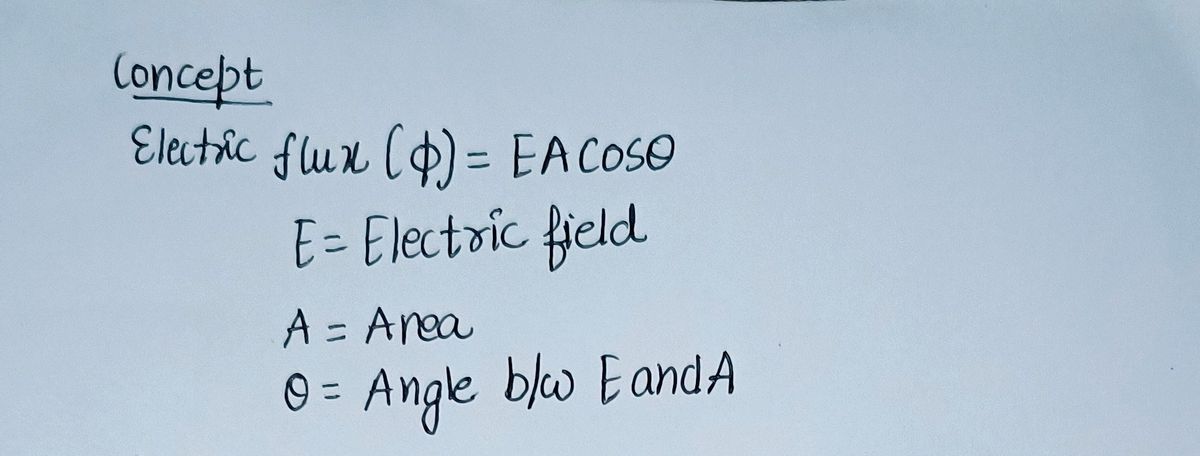 Concept
Electric flux (ϕ) = EA COSθ
E = Electric field
A = Area
θ = Angle b/w E and A